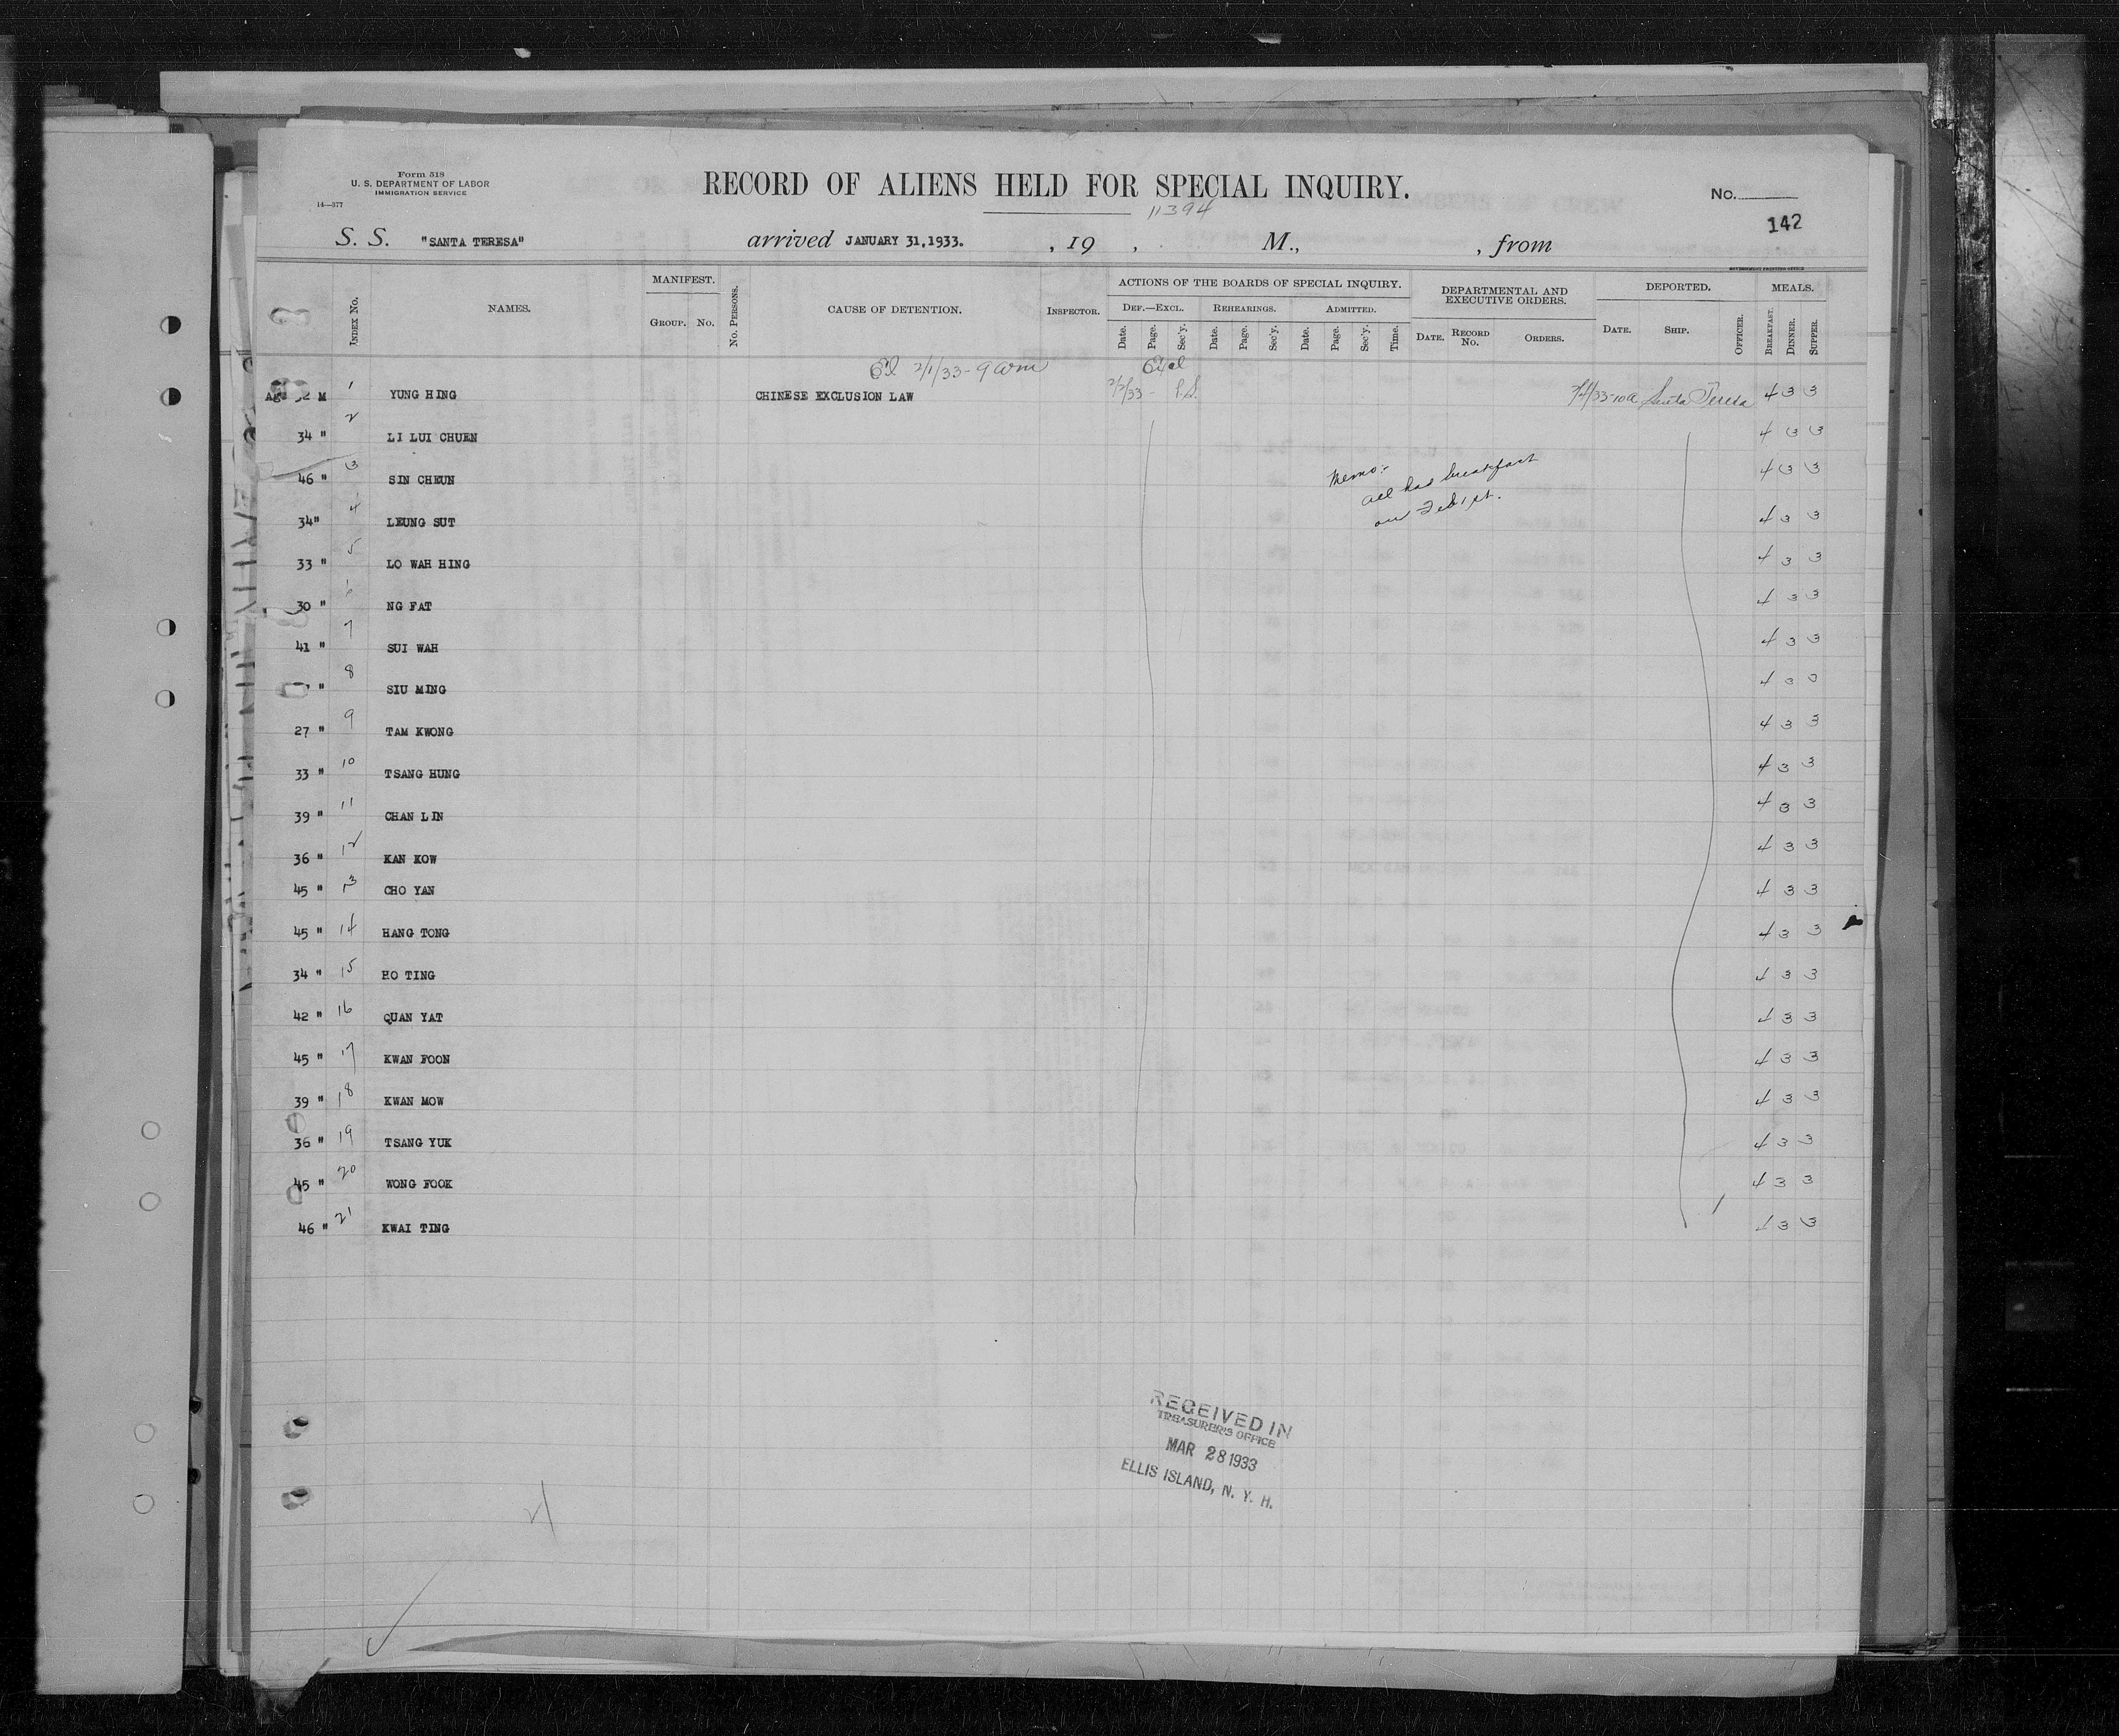 Form 518
U. S. DEPARTMENT OF LABOR
IMMIGRATION SERVICE
14—377
RECORD OF ALIENS HELD FOR SPECIAL INQUIRY.
11394
No.
142
S. S. "SANTA TERESA" arrived JANUARY 31,1933. , 19 , M., , from
GOVERNMENT PRINTING OFFICE
INDEX No. NAMES. MANIFEST. GROUP. No. No. PERSONS. CAUSE OF DETENTION. INSPECTOR. ACTIONS OF THE BOARDS OF SPECIAL INQUIRY. DEF.—EXCL. REHEARINGS. ADMITTED. DEPARTMENTAL AND EXECUTIVE ORDERS. DEPORTED. MEALS.
Date. Page. Sec'y. Date. Page. Sec'y. Date. Page. Sec'y. Time. DATE. RECORD No. ORDERS. DATE. SHIP. OFFICER. BREAKFAST. DINNER. SUPPER.
2/1/33-9 am
M 1 YUNG HING CHINESE EXCLUSION LAW 2/2/33- Santa Teresa 4 3 3
34 " 2 LI LUI CHUEN 4 3 3
46 " 3 SIN CHEUN 4 3 3
Memo:-
all had breakfast
on Feb 1st.
34" 4 LEUNG SUT 4 3 3
33 " 5 LO WAH HING 4 3 3
30 " 6 NG FAT 4 3 3
41 " 7 SUI WAH 4 3 3
" 8 SIU MING 4 3 3
27 " 9 TAM KWONG 4 3 3
33 " 10 TSANG HUNG 4 3 3
39 " 11 CHAN LIN 4 3 3
36 " 12 KAN KOW 4 3 3
45 " 13 CHO YAN 4 3 3
45 " 14 HANG TONG 4 3 3
34 " 15 HO TING 4 3 3
42 " 16 QUAN YAT 4 3 3
45 " 17 KWAN FOON 4 3 3
39 " 18 KWAN MOW 4 3 3
36 " 19 TSANG YUK 4 3 3
45 " 20 WONG FOOK 4 3 3
46 " 21 KWAI TING 4 3 3
RECEIVED IN
TREASURER'S OFFICE
MAR 28 1933
ELLIS ISLAND, N. Y. H.
21